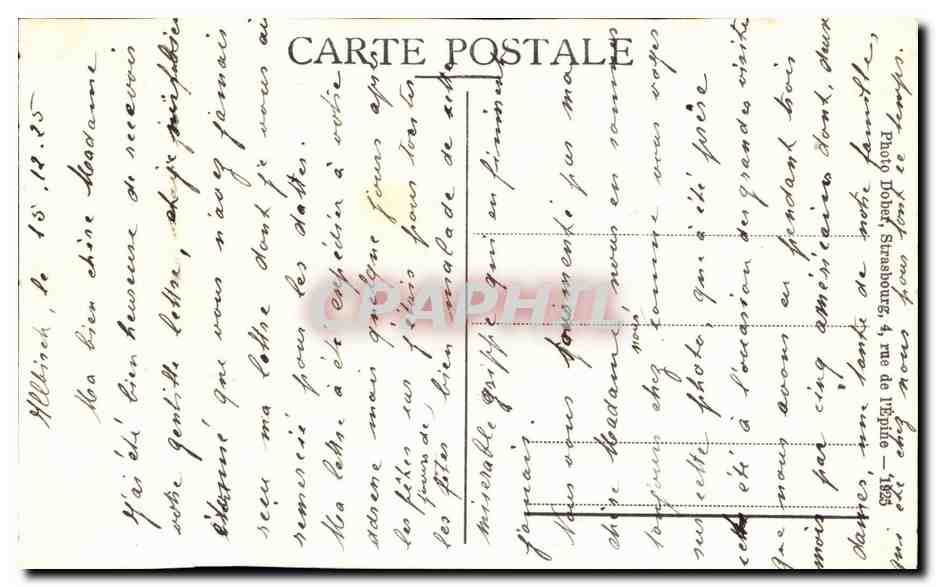 CARTE POSTALE
Illkirch, le 15.12.25
Ma bien chère Madame
J'ai été bien heureuse de recevoir
votre gentille lettre,
étonné que vous n'avez jamais
reçu ma lettre dont je vous ai
remercié pour les dattes.
Ma lettre a été expédier à votre
adresse mais quelque jours après
les fêtes car j'étais pour toutes
jours de
les fêtes bien malade de cette
misérable grippe qui en finissait
jamais.
Vous vous pas ma
chère Madame nous en sommes
nous
toujours chez comme vous voyez
sur cette photo, qui a été prise
cette été à l'occasion des grandes visites
que nous avons eu pendant trois
mois par cinq américains dont, deux
dames, une tante de notre famille,
qui été chez nous pour tout ce temps.
Photo Dober, Strasbourg, 4, rue de l'Epine — 1925
CPAPHIL